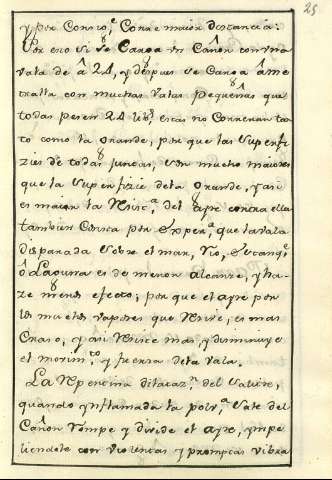 25
y por Consig.te Corre maior distancia:
Por eso si se Carga un Cañon con una
vala de â 24, y despues se Carga â me
tralla con muchas valas pequeñas que
todas pesen 24 lib.s estas no Correran tan
to como la grande, por que las superfi
zies de todas juntas, son mucho maiores
que la superfizie dela grande, y asi
es maior la Resist.a del ayre contra ellas
tambien Consta por Experi.a que la vala
disparada sobre el mar, Rio, Estanq.e
ô Laguna es de menor alcanze, y ha-
ze menos efecto; por que el ayre por
los muchos vapores que Resive, es mas
Craso, y asi Resiste mas, y disminuye
el movim.to y fuerza dela vala.
La Repentina dilataz.n del salitre,
quando ynflamada la polv.a sale del
Cañon rompe y divide el ayre, ympe
liendole con violencia y prompta vibra